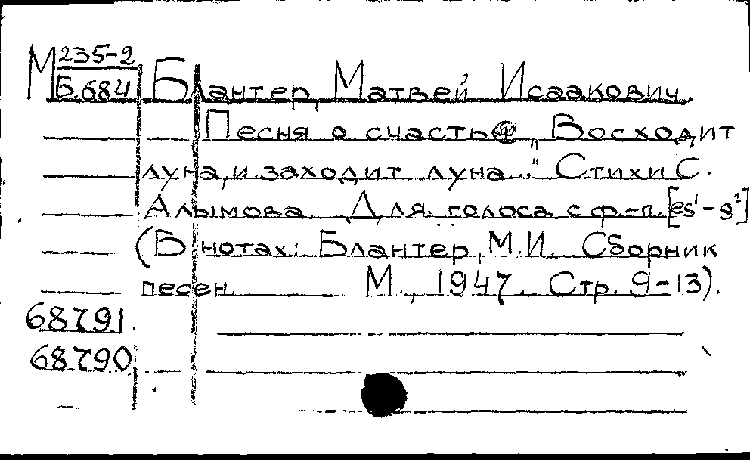 М 235-2
Б.684 Блантер, Матвей Исаакович.
Песня о счастье „Восходит
луна, и заходит луна..." Стихи С.
Алымова. Для голоса с ф-п. [es¹-g²]
(В нотах: Блантер, М.И. Сборник
песен. М., 1947. Стр. 9-13).
68791.
68790